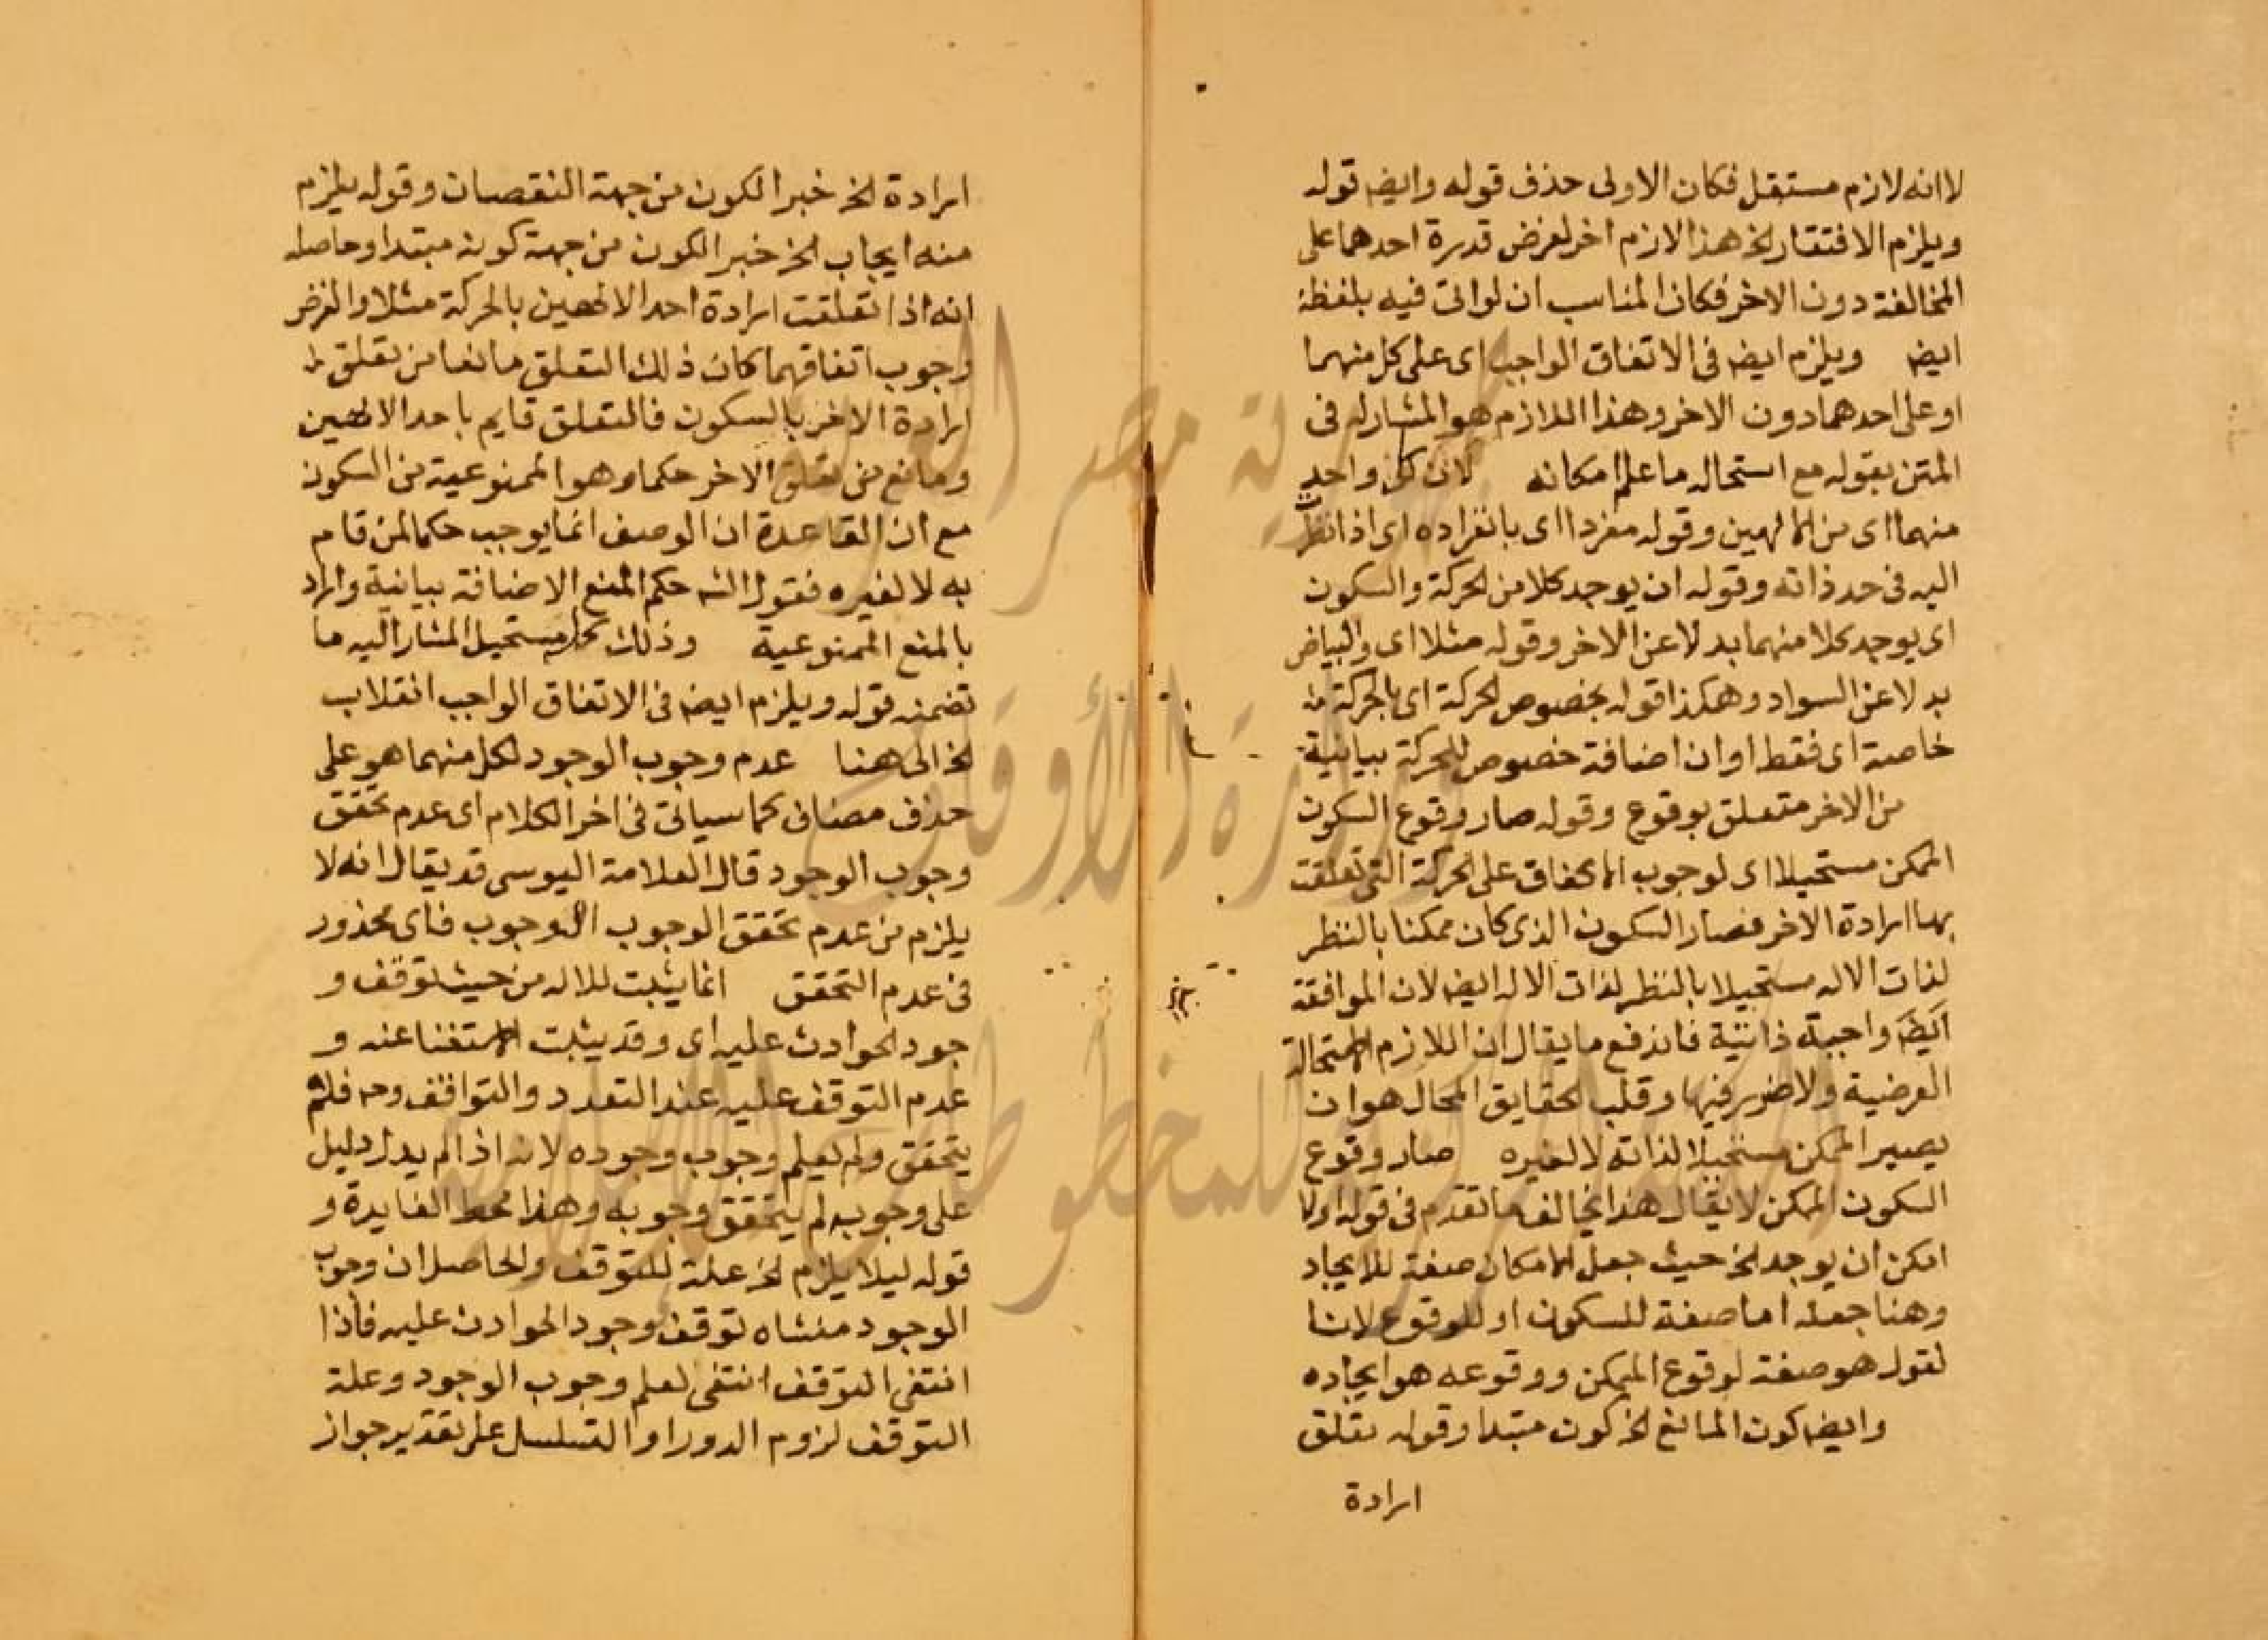 لا انه لازم مستقل فكان الاولى حذف قوله وايضه قوله
ويلزم الافتقار الخ هذا لازم اخر لفرض قدرة احدهما على
المخالفة دون الاخر فكان المناسب ان لو اتى فيه بلفظة
ايضه ويلزم ايضه فى الاتفاق الواجب اى على كل منهما
او على احدهما دون الاخر وهذا اللازم هو المشار له فى
المتن بقوله مع استحالة ما علم امكانه لان كل واحد
منهما اى من الالهين وقوله مفردا اى بانفراده اى اذا نظرت
اليه فى حد ذاته وقوله ان يوجد كلا من الحركة والسكون
اى يوجد كلا منهما بدلا عن الاخر وقوله مثلا اى والبياض
بدلا عن السواد وهكذا قوله بخصوص الحركة اى بالحركة
خاصة اى فقط او ان اضافة خصوص للحركة بيانية
من الاخر متعلق بوقوع وقوله صار وقوع السكون
الممكن مستحيلا اى لوجوب الاتفاق على الحركة التى تعلقت
بها ارادة الاخر فصار السكون الذى كان ممكنا بالنظر
لذات الاله مستحيلا بالنظر لذات الاله ايضه لان الموافقة
ايضه واجبة ذاتية فاندفع ما يقال ان اللازم الاستحالة
العرضية ولا ضرر فيها وقلب الحقايق المحال هو ان
يصير الممكن مستحيلا لذاته لا لغيره صار وقوع
السكون الممكن لا يقال هذا يخالف ما تقدم فى قوله اولا
امكن ان يوجد الخ حيث جعل الامكان صفة للايجاد
وهنا جعله اما صفة للسكون او للوقوع لانا
نقول هو صفة لوقوع الممكن ووقوعه هو ايجاده
وايضه كون المانع الخ كون مبتدا وقوله تعلق
ارادة
ارادة الخ خبر الكون من جهة النقصان وقوله يلزم
منه ايجاب الخ خبر الكون من جهة كونه مبتدا وحاصله
انه اذا تعلقت ارادة احد الالهين بالحركة مثلا والفرض
وجوب اتفاقهما كان ذلك التعلق مانعا من تعلق
ارادة الاخر بالسكون فالتعلق قايم باحد الالهين
ومانع من تعلق الاخر حكما وهو الممنوعية من السكون
مع ان القاعدة ان الوصف انما يوجب حكما لمن قام
به لا لغيره فقول الشه حكم المنع الاضافة بيانية واراد
بالمنع الممنوعية وذلك كله مستحيل المشار اليه ما
تضمنه قوله ويلزم ايضه فى الاتفاق الواجب انقلاب
الخ الى هنا عدم وجوب الوجود لكل منهما هو على
حذف مضاف كما سياتى فى اخر الكلام اى عدم تحقق
وجوب الوجود قال العلامة اليوسى قد يقال انه لا
يلزم من عدم تحقق الوجوب الا وجوب فاى محذور
فى عدم التحقق انما يثبت للاله من حيث توقف و
جود الحوادث عليه اى وقد يثبت الاستغنا عنه و
عدم التوقف عليه عند التعدد والتوافق وحه فلم
يتحقق ولم نعلم وجوب وجوده لانه اذا لم يدل دليل
على وجوبه لم يتحقق وجوبه وهذا محط الفايدة و
قوله ليلا يلزم الخ علة للتوقف والحاصل ان وجوب
الوجود منشاه توقف وجود الحوادث عليه فاذا
انتفى التوقف انتفى لعلم وجوب الوجود وعلة
التوقف لزوم الدور او التسلسل على تقدير جواز